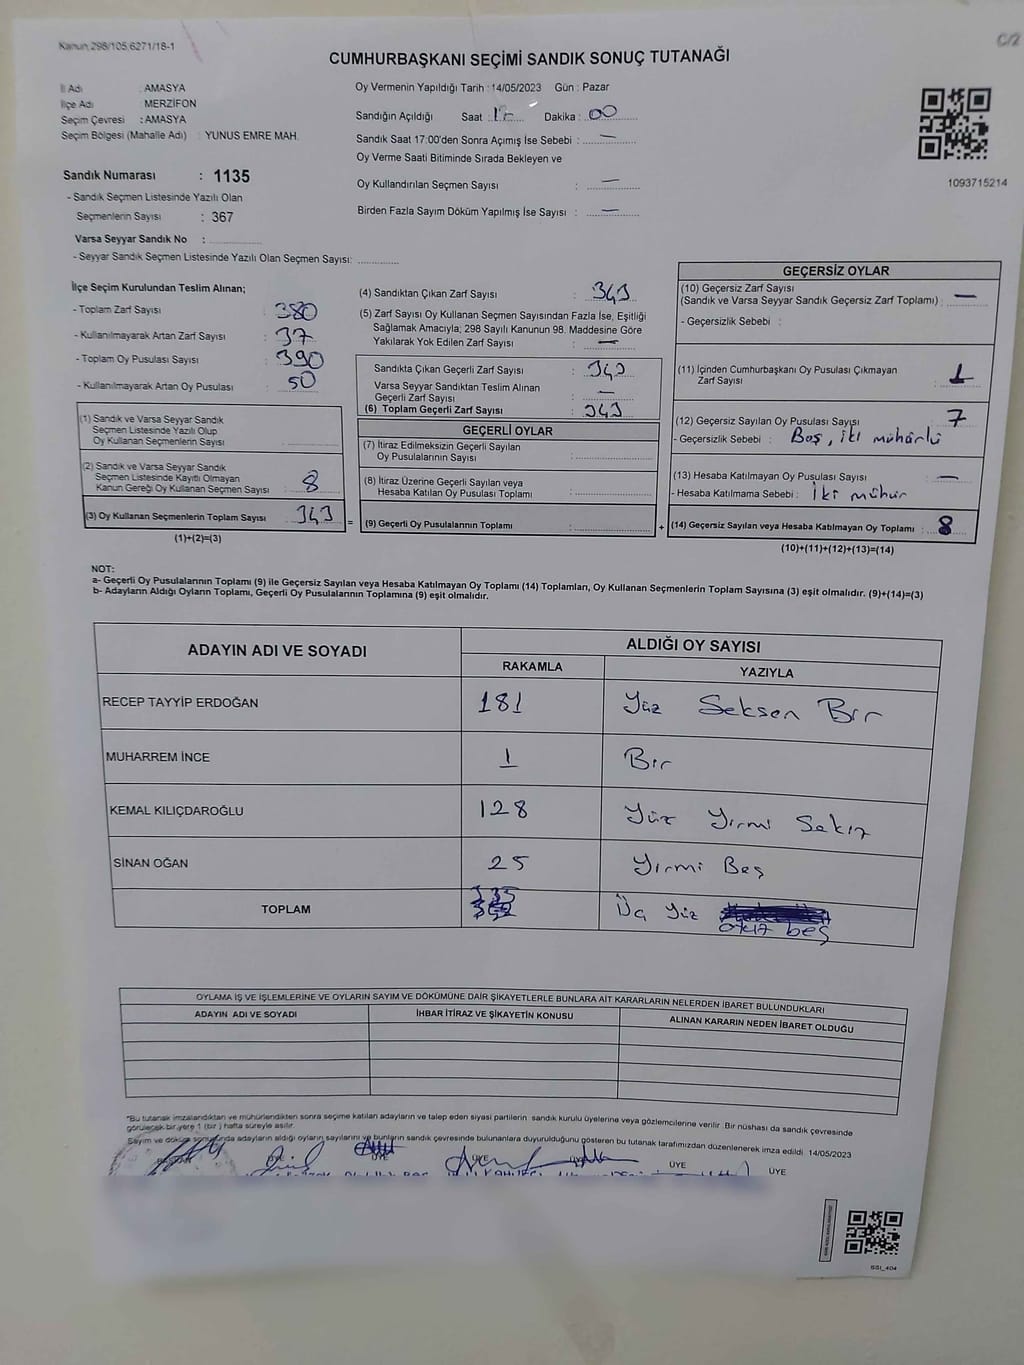 Kanun:298/105;6271/18-1
C/2
CUMHURBAŞKANI SEÇİMİ SANDIK SONUÇ TUTANAĞI
İl Adı : AMASYA
İlçe Adı : MERZİFON
Seçim Çevresi : AMASYA
Seçim Bölgesi (Mahalle Adı) : YUNUS EMRE MAH.
Oy Vermenin Yapıldığı Tarih : 14/05/2023 Gün : Pazar
Sandığın Açıldığı Saat : Dakika : 00
Sandık Saat 17:00'den Sonra Açımış İse Sebebi : —
Oy Verme Saati Bitiminde Sırada Bekleyen ve
Oy Kullandırılan Seçmen Sayısı : —
Birden Fazla Sayım Döküm Yapılmış İse Sayısı : —
1093715214
Sandık Numarası : 1135
- Sandık Seçmen Listesinde Yazılı Olan
Seçmenlerin Sayısı : 367
Varsa Seyyar Sandık No :
- Seyyar Sandık Seçmen Listesinde Yazılı Olan Seçmen Sayısı:
İlçe Seçim Kurulundan Teslim Alınan;
- Toplam Zarf Sayısı : 380
- Kullanılmayarak Artan Zarf Sayısı : 37
- Toplam Oy Pusulası Sayısı : 390
- Kullanılmayarak Artan Oy Pusulası : 50
(1) Sandık ve Varsa Seyyar Sandık
Seçmen Listesinde Yazılı Olup
Oy Kullanan Seçmenlerin Sayısı :
(2) Sandık ve Varsa Seyyar Sandık
Seçmen Listesinde Kayıtlı Olmayan
Kanun Gereği Oy Kullanan Seçmen Sayısı : 8
(3) Oy Kullanan Seçmenlerin Toplam Sayısı : 343 =
(1)+(2)=(3)
(4) Sandıktan Çıkan Zarf Sayısı : 343
(5) Zarf Sayısı Oy Kullanan Seçmen Sayısından Fazla İse, Eşitliği
Sağlamak Amacıyla; 298 Sayılı Kanunun 98. Maddesine Göre
Yakılarak Yok Edilen Zarf Sayısı : —
Sandıkta Çıkan Geçerli Zarf Sayısı : 343
Varsa Seyyar Sandıktan Teslim Alınan
Geçerli Zarf Sayısı : —
(6) Toplam Geçerli Zarf Sayısı : 343
GEÇERLİ OYLAR
(7) İtiraz Edilmeksizin Geçerli Sayılan
Oy Pusulalarının Sayısı :
(8) İtiraz Üzerine Geçerli Sayılan veya
Hesaba Katılan Oy Pusulası Toplamı :
(9) Geçerli Oy Pusulalarının Toplamı : +
GEÇERSİZ OYLAR
(10) Geçersiz Zarf Sayısı
(Sandık ve Varsa Seyyar Sandık Geçersiz Zarf Toplamı) : —
- Geçersizlik Sebebi :
(11) İçinden Cumhurbaşkanı Oy Pusulası Çıkmayan
Zarf Sayısı : 1
(12) Geçersiz Sayılan Oy Pusulası Sayısı : 7
- Geçersizlik Sebebi : Boş, iki mühürlü
(13) Hesaba Katılmayan Oy Pusulası Sayısı : —
- Hesaba Katılmama Sebebi : İki mühür
(14) Geçersiz Sayılan veya Hesaba Katılmayan Oy Toplamı : 8
(10)+(11)+(12)+(13)=(14)
NOT:
a- Geçerli Oy Pusulalarının Toplamı (9) ile Geçersiz Sayılan veya Hesaba Katılmayan Oy Toplamı (14) Toplamları, Oy Kullanan Seçmenlerin Toplam Sayısına (3) eşit olmalıdır. (9)+(14)=(3)
b- Adayların Aldığı Oyların Toplamı, Geçerli Oy Pusulalarının Toplamına (9) eşit olmalıdır.
ADAYIN ADI VE SOYADI
ALDIĞI OY SAYISI
RAKAMLA YAZIYLA
RECEP TAYYİP ERDOĞAN 181 Yüz Seksen Bir
MUHARREM İNCE 1 Bir
KEMAL KILIÇDAROĞLU 128 Yüz Yirmi Sekiz
SİNAN OĞAN 25 Yirmi Beş
TOPLAM 335 Üç Yüz otuz beş
OYLAMA İŞ VE İŞLEMLERİNE VE OYLARIN SAYIM VE DÖKÜMÜNE DAİR ŞİKAYETLERLE BUNLARA AİT KARARLARIN NELERDEN İBARET BULUNDUKLARI
ADAYIN ADI VE SOYADI İHBAR İTİRAZ VE ŞİKAYETİN KONUSU ALINAN KARARIN NEDEN İBARET OLDUĞU
*Bu tutanak imzalandıktan ve mühürlendikten sonra seçime katılan adayların ve talep eden siyasi partilerin sandık kurulu üyelerine veya gözlemcilerine verilir. Bir nüshası da sandık çevresinde
görülecek bir yere 1 (bir ) hafta süreyle asılır.
Sayım ve döküm sonucunda adayların aldığı oyların sayılarını ve bunların sandık çevresinde bulunanlara duyurulduğunu gösteren bu tutanak tarafımızdan düzenlenerek imza edildi. 14/05/2023
ÜYE ÜYE
SSİ_404